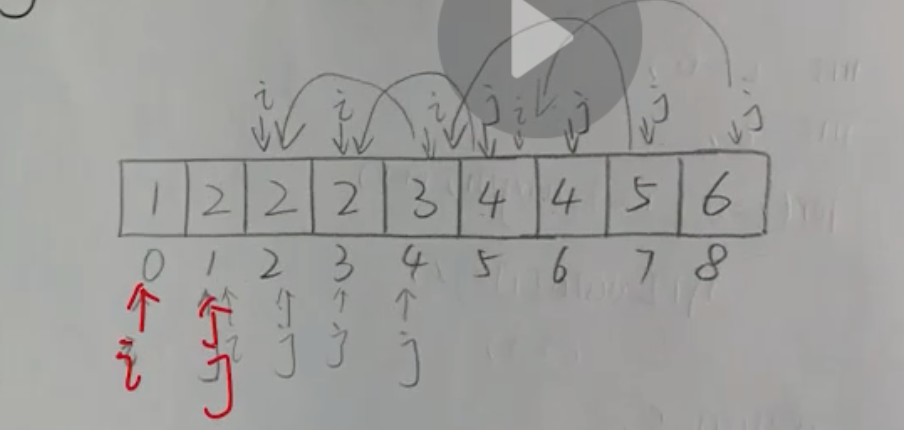 i i i j i j j j
1 2 2 2 3 4 4 5 6
0 1 2 3 4 5 6 7 8
i j i j j j
j